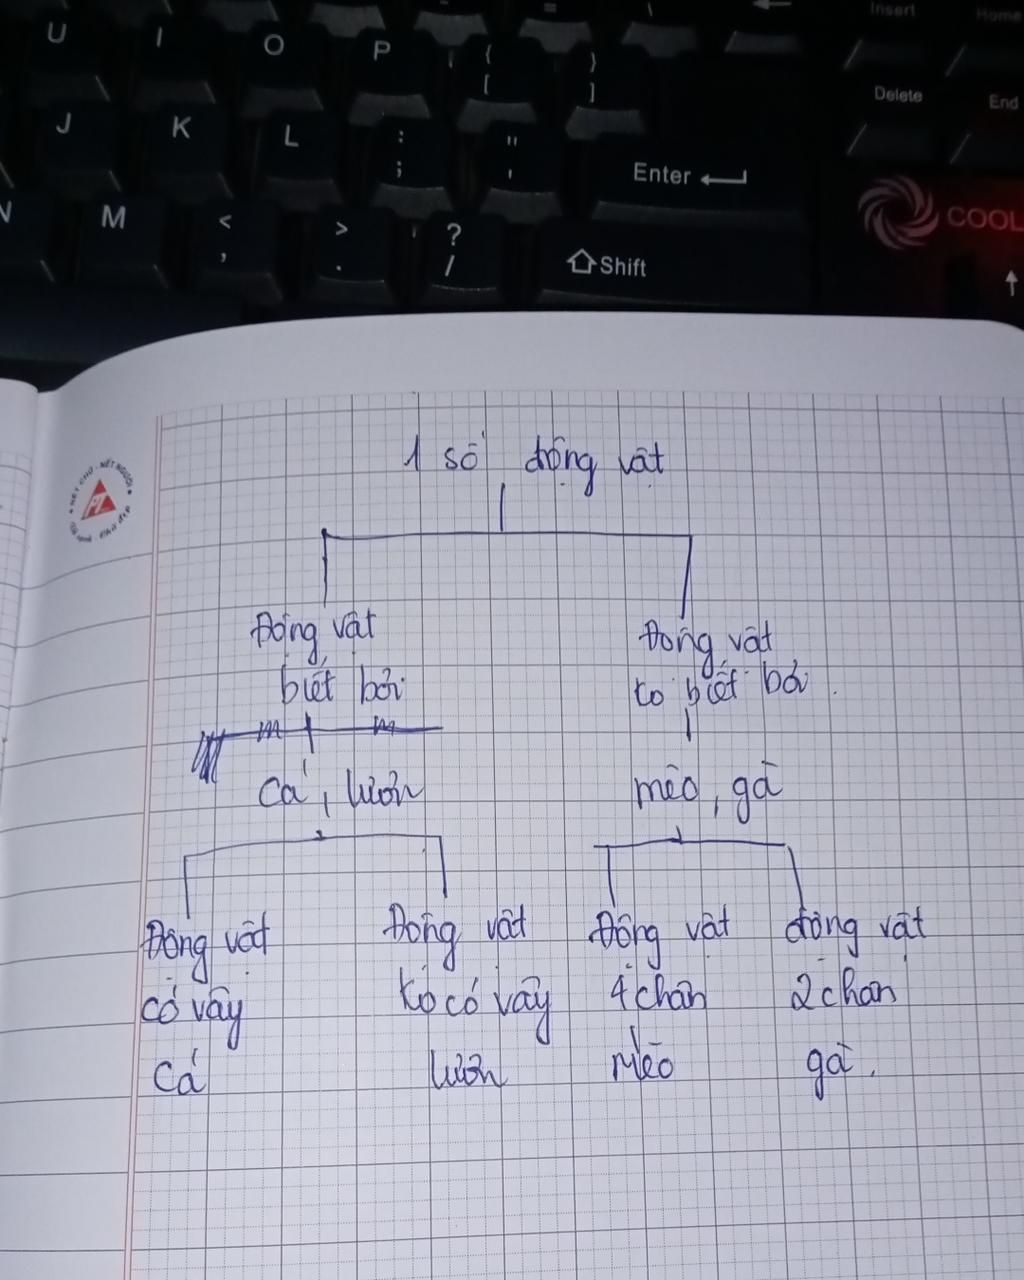 U I O P { [ } ] Insert Home
J K L : ; " ' Enter Delete End
N M < , > . ? / Shift COOL
NÉT CHỮ - NẾT NGƯỜI
PT
1 số động vật
Động vật
biết bơi
Động vật
ko biết bơi
cá, lươn
mèo, gà
Động vật
có vây
cá
Động vật
ko có vây
lươn
Động vật
4 chân
Mèo
động vật
2 chân
gà.